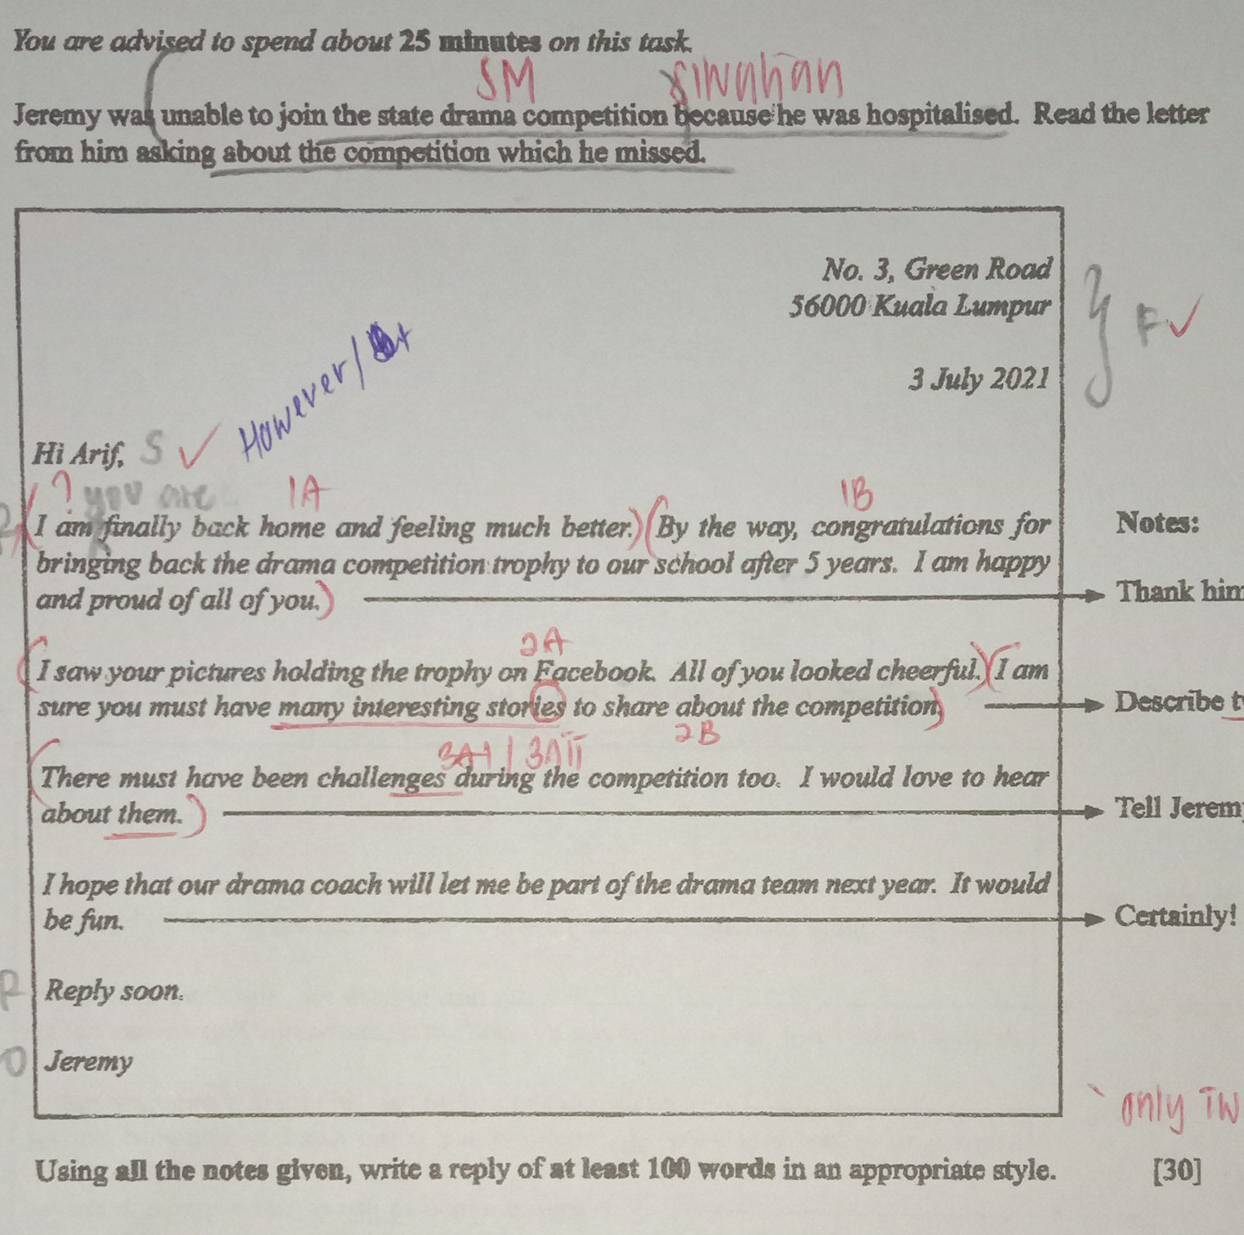 You are advised to spend about 25 minutes on this task.
SM
Jeremy was unable to join the state drama competition because he was hospitalised. Read the letter
from him asking about the competition which he missed.
No. 3, Green Road
56000 Kuala Lumpur
F ✓
3 July 2021
However/
Hi Arif, S ✓
? you are 1A 1B
I am finally back home and feeling much better. By the way, congratulations for
Notes:
bringing back the drama competition trophy to our school after 5 years. I am happy
and proud of all of you.
Thank him
2A
I saw your pictures holding the trophy on Facebook. All of you looked cheerful. I am
sure you must have many interesting stories to share about the competition
Describe
2B
There must have been challenges during the competition too. I would love to hear
about them.
Tell Jerem
I hope that our drama coach will let me be part of the drama team next year. It would
be fun.
Certainly!
P Reply soon.
O Jeremy
only
Using all the notes given, write a reply of at least 100 words in an appropriate style. [30]